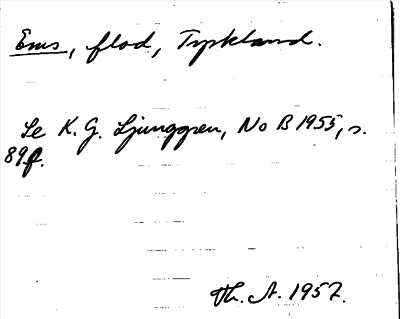 Ems, flod, Tyskland.
Se K. G. Ljunggren, NoB 1955, s.
89 f.
Th. A. 1957.